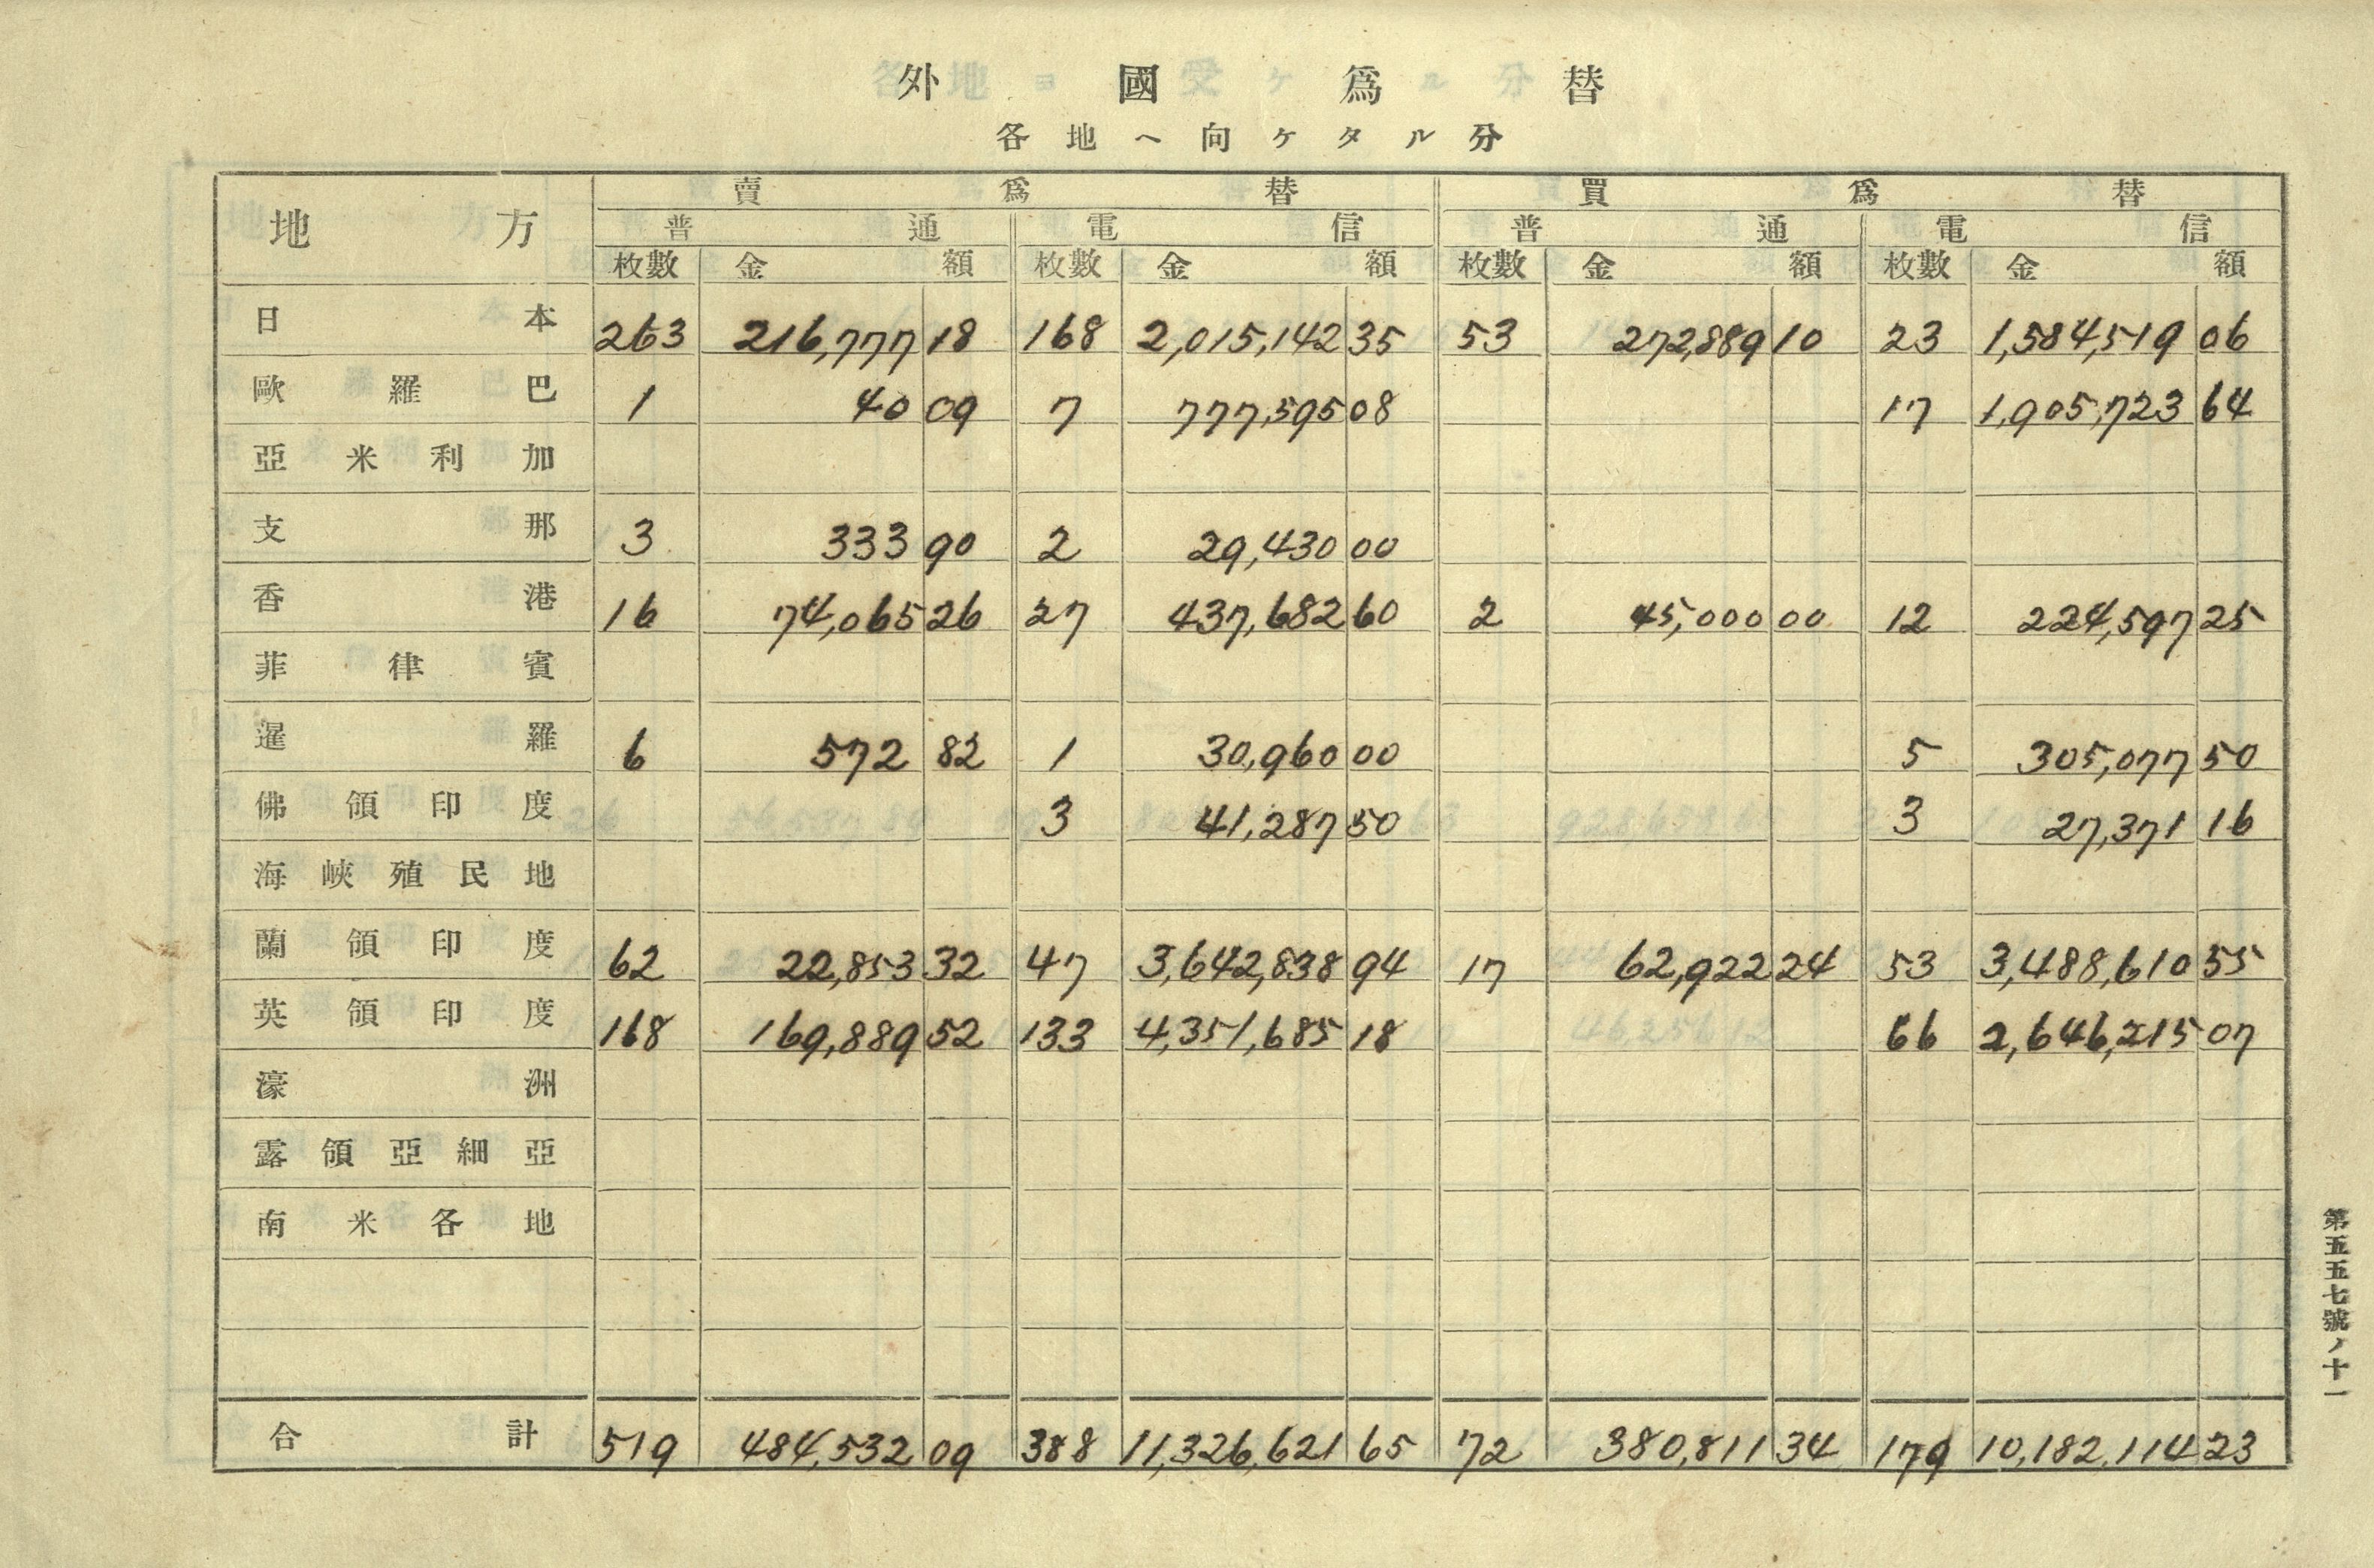 外國爲替
各地ヘ向ケタル分
地方 賣爲替 買爲替
普通 電信 普通 電信
枚數 金額 枚數 金額 枚數 金額 枚數 金額
日本 263 216,777 18 168 2,015,142 35 53 272,889 10 23 1,584,519 06
歐羅巴 1 40 09 7 777,595 08 17 1,905,723 64
亞米利加
支那 3 333 90 2 29,430 00
香港 16 74,065 26 27 437,682 60 2 45,000 00 12 224,597 25
菲律賓
暹羅 6 572 82 1 30,960 00 5 305,077 50
佛領印度 3 41,287 50 3 27,371 16
海峽殖民地
蘭領印度 62 22,853 32 47 3,642,838 94 17 62,922 24 53 3,488,610 55
英領印度 168 169,889 52 133 4,351,685 18 66 2,646,215 07
濠洲
露領亞細亞
南米各地
合計 519 484,532 09 388 11,326,621 65 72 380,811 34 179 10,182,114 23
第五五七號ノ十一